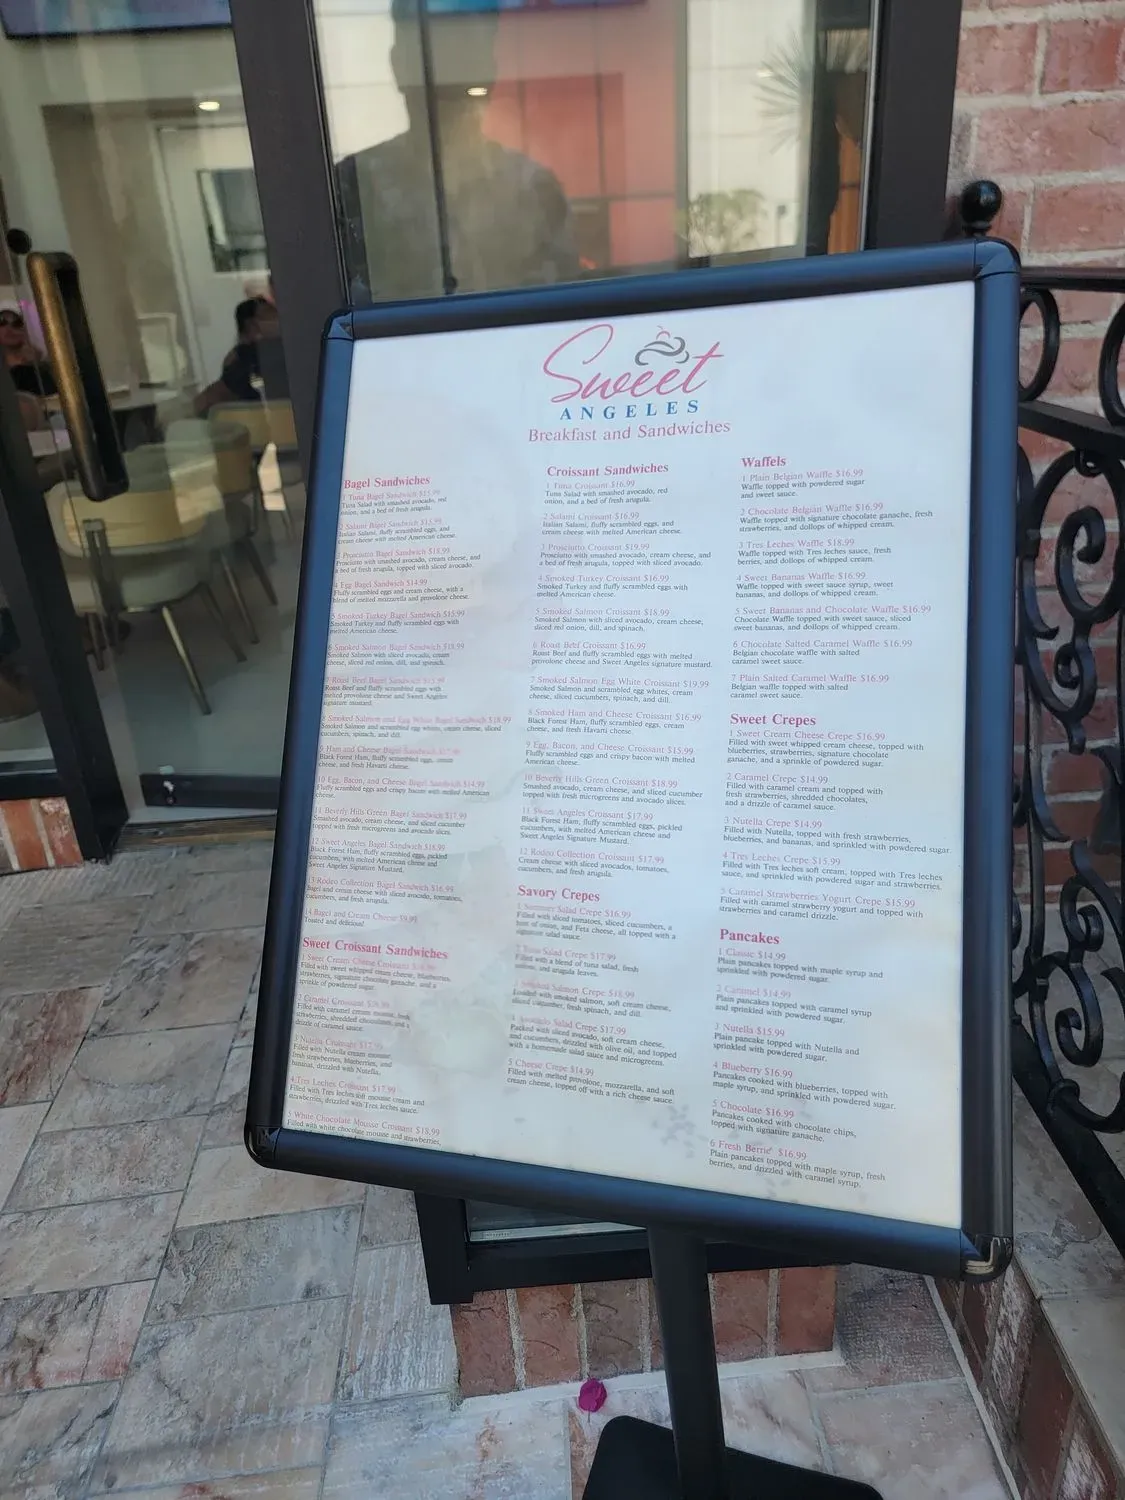 Sweet
ANGELES
Breakfast and Sandwiches
Bagel Sandwiches
1 Tuna Bagel Sandwich $15.99
Tuna Salad with smashed avocado, red
onion, and a bed of fresh arugula.
2 Salami Bagel Sandwich $15.99
Italian Salami, fluffy scrambled eggs, and
cream cheese with melted American cheese.
3 Prosciutto Bagel Sandwich $18.99
Prosciutto with smashed avocado, cream cheese, and
a bed of fresh arugula, topped with sliced avocado.
4 Egg Bagel Sandwich $14.99
Fluffy scrambled eggs and cream cheese, with a
blend of melted mozzarella and provolone cheese.
5 Smoked Turkey Bagel Sandwich $15.99
Smoked Turkey and fluffy scrambled eggs with
melted American cheese.
6 Smoked Salmon Bagel Sandwich $18.99
Smoked Salmon with sliced avocado, cream
cheese, sliced red onion, dill, and spinach.
7 Roast Beef Bagel Sandwich $15.99
Roast Beef and fluffy scrambled eggs with
melted provolone cheese and Sweet Angeles
signature mustard.
8 Smoked Salmon and Egg White Bagel Sandwich $18.99
Smoked Salmon and scrambled egg whites, cream cheese, sliced
cucumbers, spinach, and dill.
9 Ham and Cheese Bagel Sandwich
Black Forest Ham, fluffy scrambled eggs, cream
cheese, and fresh Havarti cheese.
10 Egg, Bacon, and Cheese Bagel Sandwich $14.99
Fluffy scrambled eggs and crispy bacon with melted American
cheese.
11 Beverly Hills Green Bagel Sandwich $17.99
Smashed avocado, cream cheese, and sliced cucumber
topped with fresh microgreens and avocado slices.
12 Sweet Angeles Bagel Sandwich $18.99
Black Forest Ham, fluffy scrambled eggs, pickled
cucumbers, with melted American cheese and
Sweet Angeles Signature Mustard.
13 Rodeo Collection Bagel Sandwich $16.99
Bagel and cream cheese with sliced avocado, tomatoes,
cucumbers, and fresh arugula.
14 Bagel and Cream Cheese $9.99
Toasted and delicious!
Sweet Croissant Sandwiches
1 Sweet Cream Cheese Croissant
Filled with sweet whipped cream cheese, blueberries,
strawberries, signature chocolate ganache, and a
sprinkle of powdered sugar.
2 Caramel Croissant
Filled with caramel cream mousse, fresh
strawberries, shredded chocolates, and a
drizzle of caramel sauce.
3 Nutella Croissant
Filled with Nutella cream mousse,
fresh strawberries, blueberries, and
bananas, drizzled with Nutella.
4 Tres Leches Croissant $17.99
Filled with Tres leches soft mousse cream and
strawberries, drizzled with Tres leches sauce.
5 White Chocolate Mousse Croissant $18.99
Filled with white chocolate mousse and strawberries,
Croissant Sandwiches
1 Tuna Croissant $16.99
Tuna Salad with smashed avocado, red
onion, and a bed of fresh arugula.
2 Salami Croissant $16.99
Italian Salami, fluffy scrambled eggs, and
cream cheese with melted American cheese.
3 Prosciutto Croissant $19.99
Prosciutto with smashed avocado, cream cheese, and
a bed of fresh arugula, topped with sliced avocado.
4 Smoked Turkey Croissant $16.99
Smoked Turkey and fluffy scrambled eggs with
melted American cheese.
5 Smoked Salmon Croissant $18.99
Smoked Salmon with sliced avocado, cream cheese,
sliced red onion, dill, and spinach.
6 Roast Beef Croissant $16.99
Roast Beef and fluffy scrambled eggs with melted
provolone cheese and Sweet Angeles signature mustard.
7 Smoked Salmon Egg White Croissant $19.99
Smoked Salmon and scrambled egg whites, cream
cheese, sliced cucumbers, spinach, and dill.
8 Smoked Ham and Cheese Croissant $16.99
Black Forest Ham, fluffy scrambled eggs, cream
cheese, and fresh Havarti cheese.
9 Egg, Bacon, and Cheese Croissant $15.99
Fluffy scrambled eggs and crispy bacon with melted
American cheese.
10 Beverly Hills Green Croissant $18.99
Smashed avocado, cream cheese, and sliced cucumber
topped with fresh microgreens and avocado slices.
11 Sweet Angeles Croissant $17.99
Black Forest Ham, fluffy scrambled eggs, pickled
cucumbers, with melted American cheese and
Sweet Angeles Signature Mustard.
12 Rodeo Collection Croissant $17.99
Cream cheese with sliced avocados, tomatoes,
cucumbers, and fresh arugula.
Savory Crepes
1 Summer Salad Crepe $16.99
Filled with sliced tomatoes, sliced cucumbers, a
hint of onion, and Feta cheese, all topped with a
signature salad sauce.
2 Tuna Salad Crepe $17.99
Filled with a blend of tuna salad, fresh
onion, and arugula leaves.
3 Smoked Salmon Crepe $18.99
Loaded with smoked salmon, soft cream cheese,
sliced cucumber, fresh spinach, and dill.
4 Avocado Salad Crepe $17.99
Packed with sliced avocado, soft cream cheese,
and cucumbers, drizzled with olive oil, and topped
with a homemade salad sauce and microgreens.
5 Cheese Crepe $14.99
Filled with melted provolone, mozzarella, and soft
cream cheese, topped off with a rich cheese sauce.
Waffels
1 Plain Belgian Waffle $16.99
Waffle topped with powdered sugar
and sweet sauce.
2 Chocolate Belgian Waffle $16.99
Waffle topped with signature chocolate ganache, fresh
strawberries, and dollops of whipped cream.
3 Tres Leches Waffle $18.99
Waffle topped with Tres leches sauce, fresh
berries, and dollops of whipped cream.
4 Sweet Bananas Waffle $16.99
Waffle topped with sweet sauce syrup, sweet
bananas, and dollops of whipped cream.
5 Sweet Bananas and Chocolate Waffle $16.99
Chocolate Waffle topped with sweet sauce, sliced
sweet bananas, and dollops of whipped cream.
6 Chocolate Salted Caramel Waffle $16.99
Belgian chocolate waffle with salted
caramel sweet sauce.
7 Plain Salted Caramel Waffle $16.99
Belgian waffle topped with salted
caramel sweet sauce.
Sweet Crepes
1 Sweet Cream Cheese Crepe $16.99
Filled with sweet whipped cream cheese, topped with
blueberries, strawberries, signature chocolate
ganache, and a sprinkle of powdered sugar.
2 Caramel Crepe $14.99
Filled with caramel cream and topped with
fresh strawberries, shredded chocolates,
and a drizzle of caramel sauce.
3 Nutella Crepe $14.99
Filled with Nutella, topped with fresh strawberries,
blueberries, and bananas, and sprinkled with powdered sugar.
4 Tres Leches Crepe $15.99
Filled with Tres leches soft cream, topped with Tres leches
sauce, and sprinkled with powdered sugar and strawberries.
5 Caramel Strawberries Yogurt Crepe $15.99
Filled with caramel strawberry yogurt and topped with
strawberries and caramel drizzle.
Pancakes
1 Classic $14.99
Plain pancakes topped with maple syrup and
sprinkled with powdered sugar.
2 Caramel $14.99
Plain pancakes topped with caramel syrup
and sprinkled with powdered sugar.
3 Nutella $15.99
Plain pancake topped with Nutella and
sprinkled with powdered sugar.
4 Blueberry $16.99
Pancakes cooked with blueberries, topped with
maple syrup, and sprinkled with powdered sugar.
5 Chocolate $16.99
Pancakes cooked with chocolate chips,
topped with signature ganache.
6 Fresh Berrie $16.99
Plain pancakes topped with maple syrup, fresh
berries, and drizzled with caramel syrup.